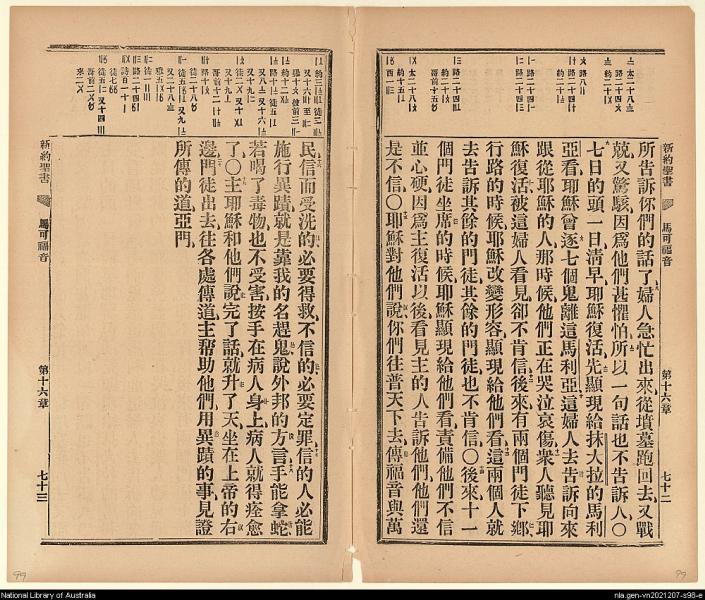 新約聖書
馬可福音
第十六章
七十二
所告訴你們的話了婦人急忙出來從墳墓跑回去又戰
兢又驚駭因爲他們甚懼怕所以一句話也不告訴人〇
七日的頭一日清早耶穌復活先顯現給抹大拉的馬利
亞看耶穌曾逐七個鬼離這馬利亞這婦人去告訴向來
跟從耶穌的人那時候他們正在哭泣哀傷衆人聽見耶
穌復活被這婦人看見卻不肯信後來有兩個門徒下鄉
行路的時候耶穌改變形容顯現給他們看這兩個人就
去告訴其餘的門徒其餘的門徒也不肯信〇後來十一
個門徒坐席的時候耶穌顯現給他們看責備他們不信
並心硬因爲主復活以後看見主的人告訴他們他們還
是不信〇耶穌對他們說你們往普天下去傳福音與萬
民信而受洗的必要得救不信的必要定罪信的人必能
施行異蹟就是靠我的名趕鬼說外邦的方言手能拿蛇
若喝了毒物也不受害按手在病人身上病人就得痊愈
了〇主耶穌和他們說完了話就升了天坐在上帝的右
邊門徒出去往各處傳道主幫助他們用異蹟的事見證
所傳的道亞們
新約聖書
馬可福音
第十六章
七十三
99
99
National Library of Australia
nla.gen-vn2021207-s98-e